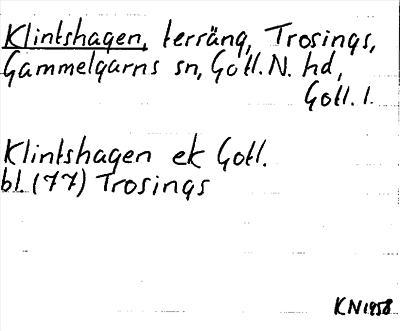 Klintshagen, terräng, Trosings,
Gammelgarns sn, Gotl. N. hd,
Gotl. l.
Klintshagen ek Gotl.
bl. (77) Trosings
KN 1958